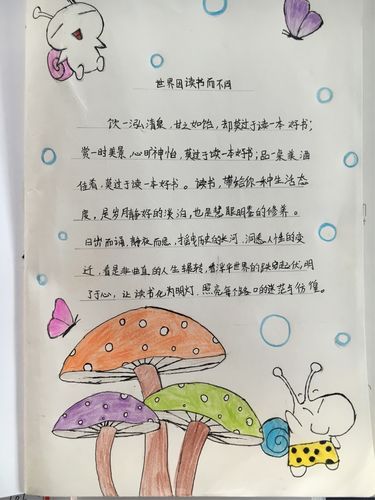 世界因读书而不同
饮一泓清泉，甘之如饴，却莫过于读一本好书；
赏一时美景，心旷神怡，莫过于读一本好书；品一桌美酒
佳肴，莫过于读一本好书。读书，带给你一种生活态
度，是岁月静好的淡泊，也是慧眼明差的修养。
日出而诵，静夜而思，历史的长河，洞悉人情的变
迁，看是非曲直的人生辗转，看浮华世界的跌宕起伏，明
了于心，让读书化为明灯，照亮每个路口的迷茫与彷徨。